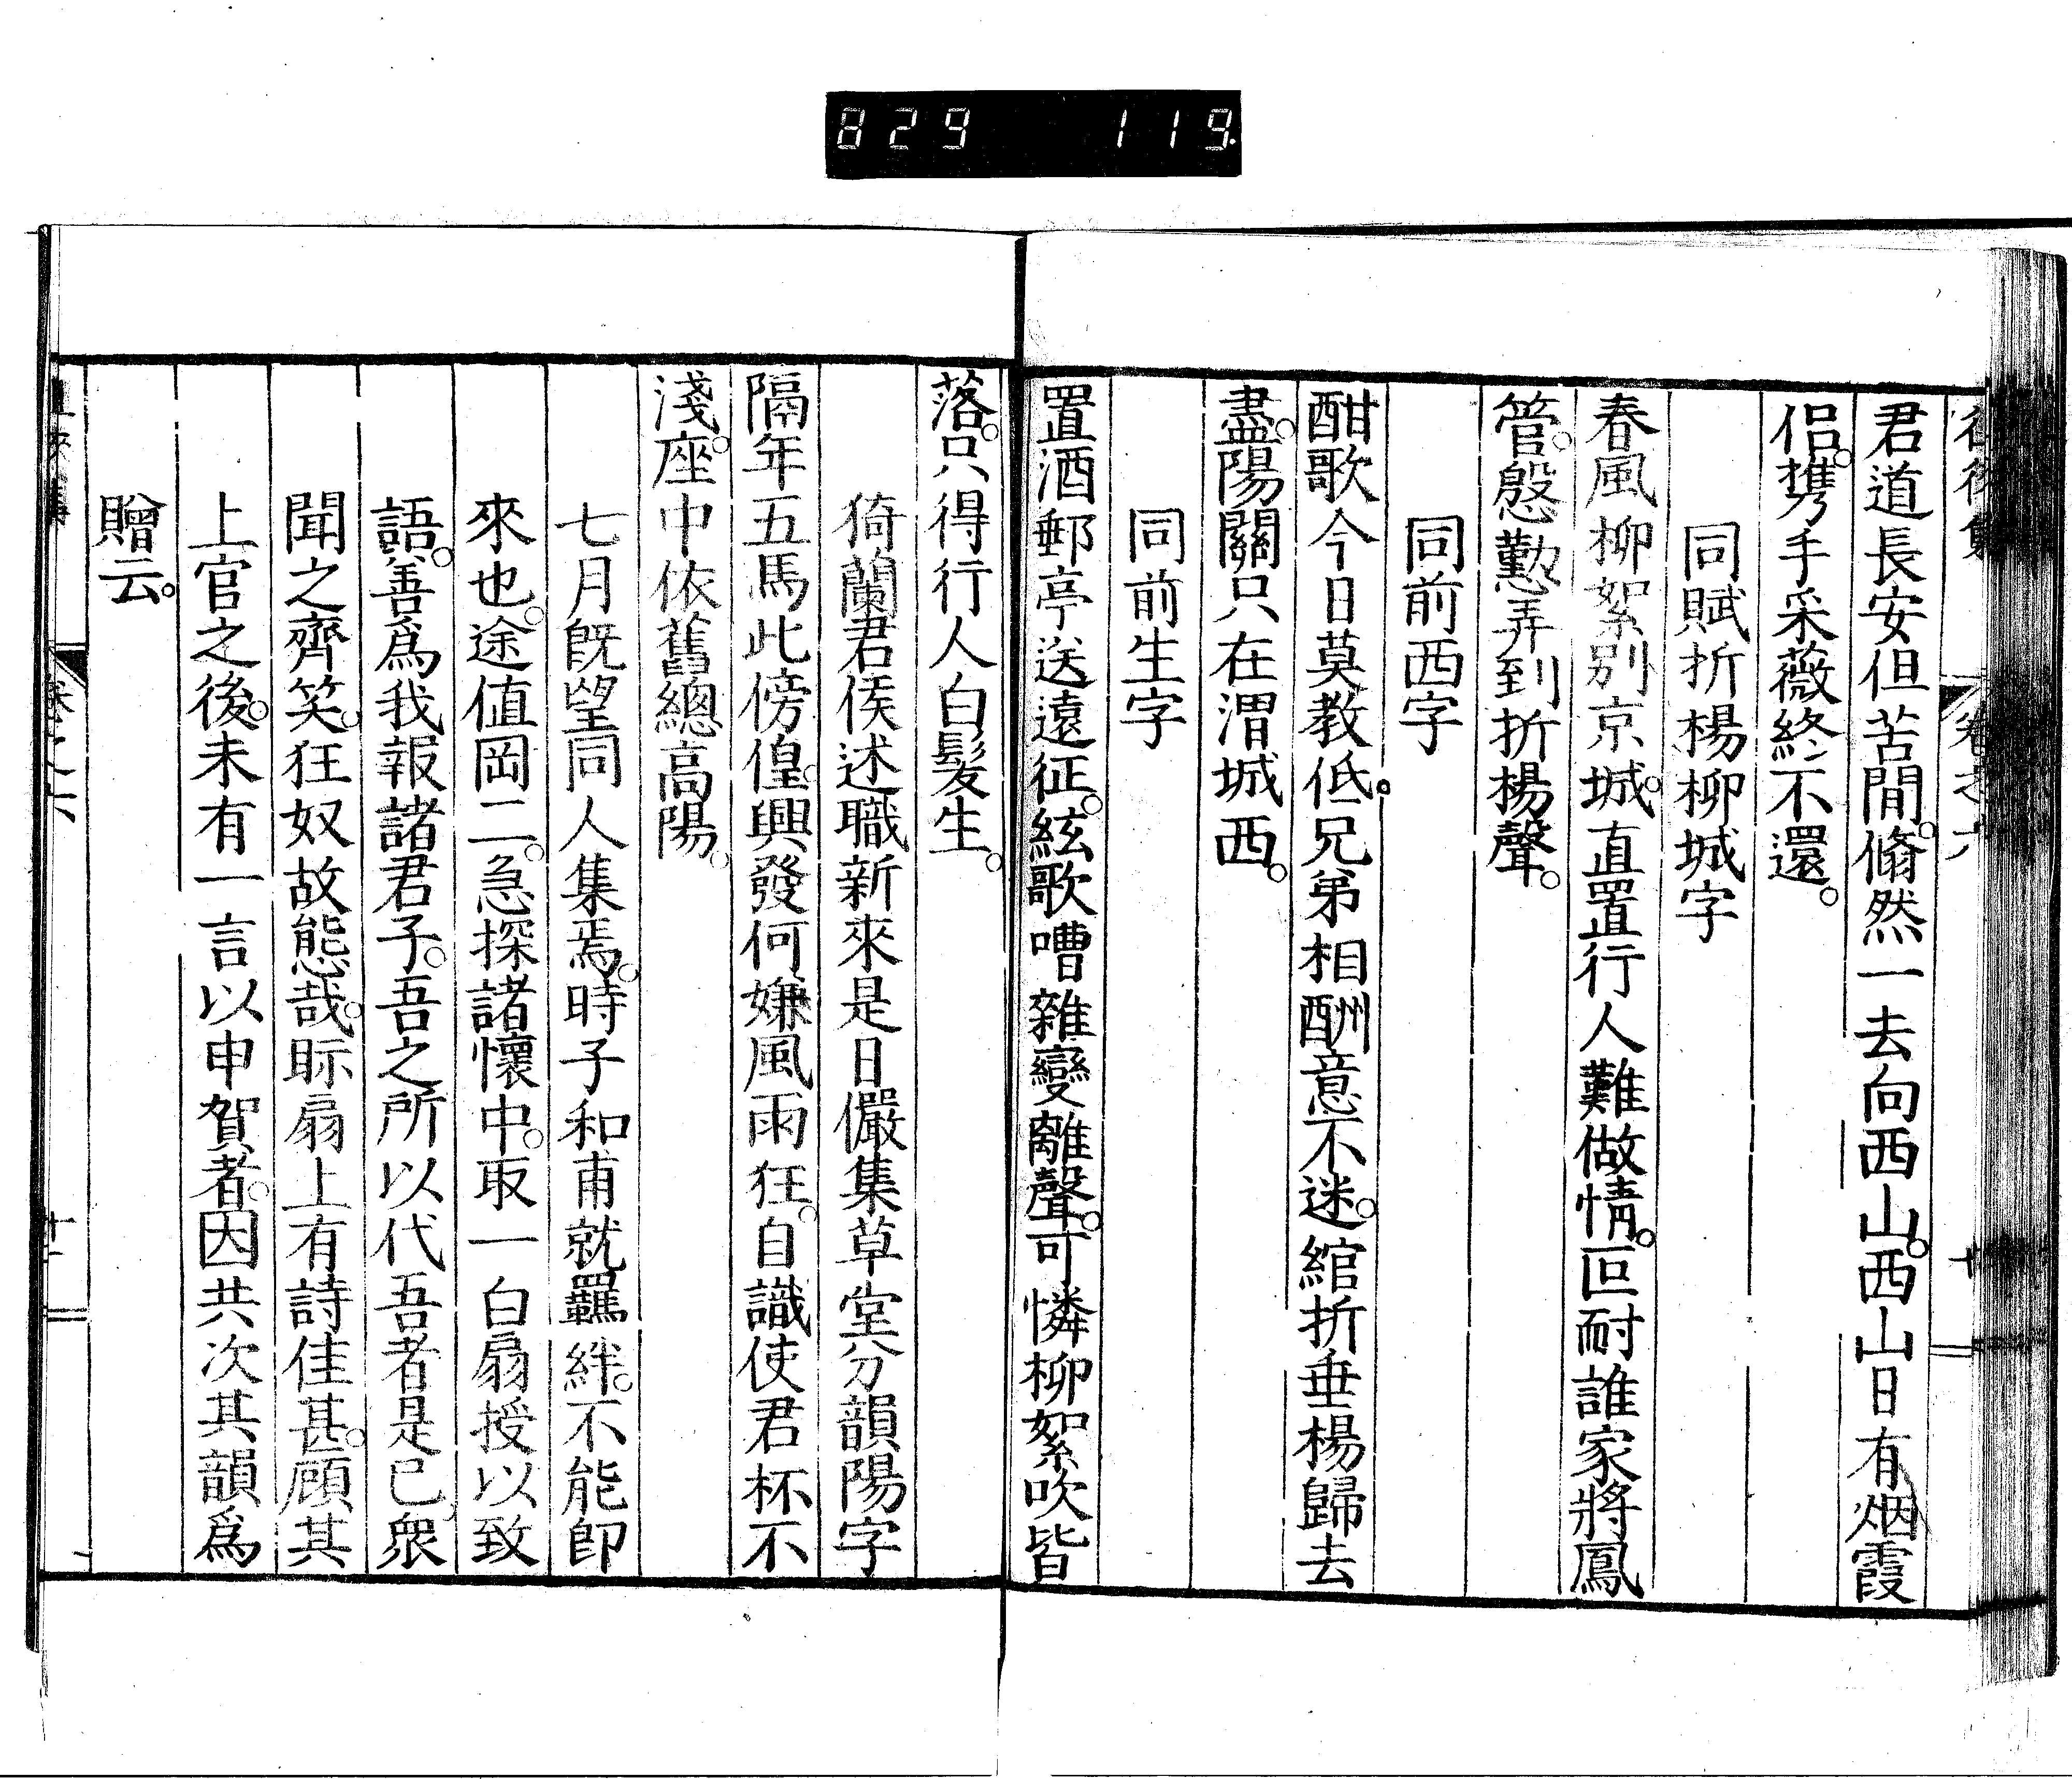 829 119.
君道長安但苦閒。翛然一去向西山。西山日有烟霞
侶。携手采薇終不還。
同賦折楊柳城字
春風柳絮別京城。直置行人難做情。叵耐誰家將鳳
管。慇懃弄到折楊聲。
同前西字
酣歌今日莫教低。兄弟相酬意不迷。綰折垂楊歸去
盡。陽關只在渭城西。
同前生字
置酒郵亭送遠征。絃歌嘈雜變離聲。可憐柳絮吹皆
落。只得行人白髮生。
猗蘭君侯述職新來是日儼集草堂分韻陽字
隔年五馬此傍偟。興發何嫌風雨狂。自識使君杯不
淺。座中依舊總高陽。
七月既望同人集焉。時子和甫就羈絆。不能卽
來也。途値岡二。急探諸懷中。取一白扇授以致
語。善爲我報諸君子。吾之所以代吾者是已。衆
聞之齊笑。狂奴故態哉。眎扇上有詩佳甚。顧其
上官之後。未有一言以申賀者。因共次其韻爲
贈云。
卷之六